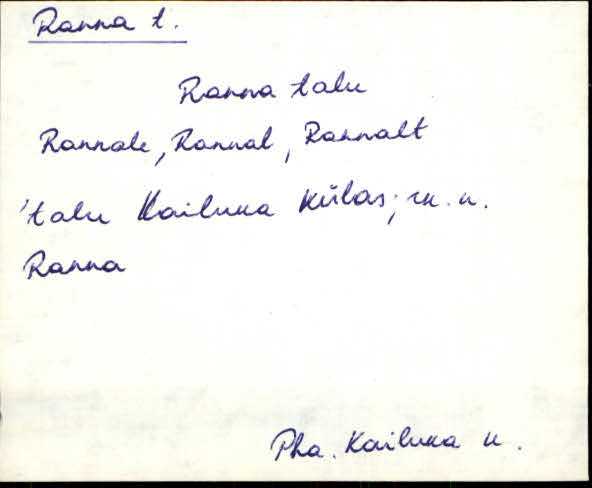 Ranna t.
Ranna talu
Rannale, Rannal, Rannalt
'talu Kailuka külas; rk. n.
Ranna
Pha. Kailuka k.